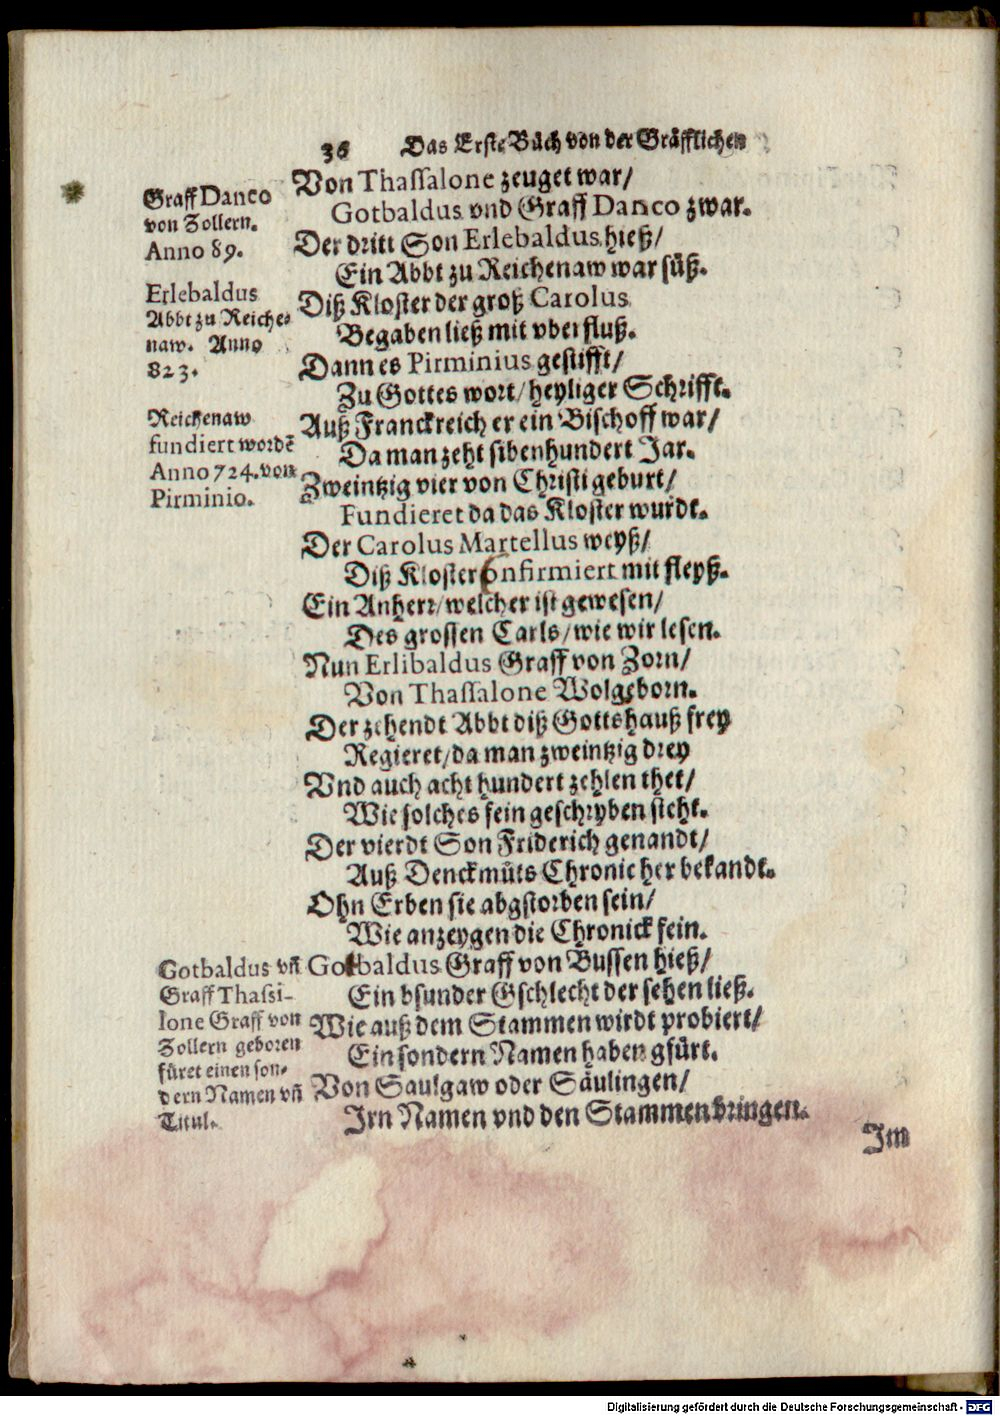 36 Das Erste Bůch von der Gräfflichen
Graff Danco
von Zollern.
Anno 89.
Erlebaldus
Abbt zu Reiche-
naw. Anno
823.
Reichenaw
fundiert wordē
Anno 724. von
Pirminio.
Gotbaldus vñ
Graff Thassi-
lone Graff von
Zollern geboren
füret einen son-
dern Namen vñ
Titul.
Von Thassalone zeuget war/
Gotbaldus vnd Graff Danco zwar.
Der dritt Son Erlebaldus hieß/
Ein Abbt zu Reichenaw war süß.
Diß Kloster der groß Carolus
Begaben ließ mit vberfluß.
Dann es Pirminius gestifft/
Zu Gottes wort/ heyliger Schrifft.
Auß Franckreich er ein Bischoff war/
Da man zehlt sibenhundert Jar.
Zweintzig vier von Christi geburt/
Fundieret da das Kloster wurdt.
Der Carolus Martellus weyß/
Diß Kloster confirmiert mit fleyß.
Ein Anherr/ welcher ist gewesen/
Des grossen Carls/ wie wir lesen.
Nun Erlibaldus Graff von Zorn/
Von Thassalone Wolgeborn.
Der zehendt Abbt diß Gottshauß frey
Regieret/ da man zweintzig drey
Vnd auch acht hundert zehlen thet/
Wie solches fein geschryben steht.
Der vierdt Son Friderich genandt/
Auß Denckmůts Chronic her bekandt.
Ohn Erben sie abgstorben sein/
Wie anzeygen die Chronick fein.
Gotbaldus Graff von Bussen hieß/
Ein bsunder Gschlecht der sehen ließ.
Wie auß dem Stammen wirdt probiert/
Ein sondern Namen haben gfürt.
Von Saulgaw oder Säulingen/
Irn Namen vnd den Stammen bringen.
Im
Digitalisierung gefördert durch die Deutsche Forschungsgemeinschaft - DFG